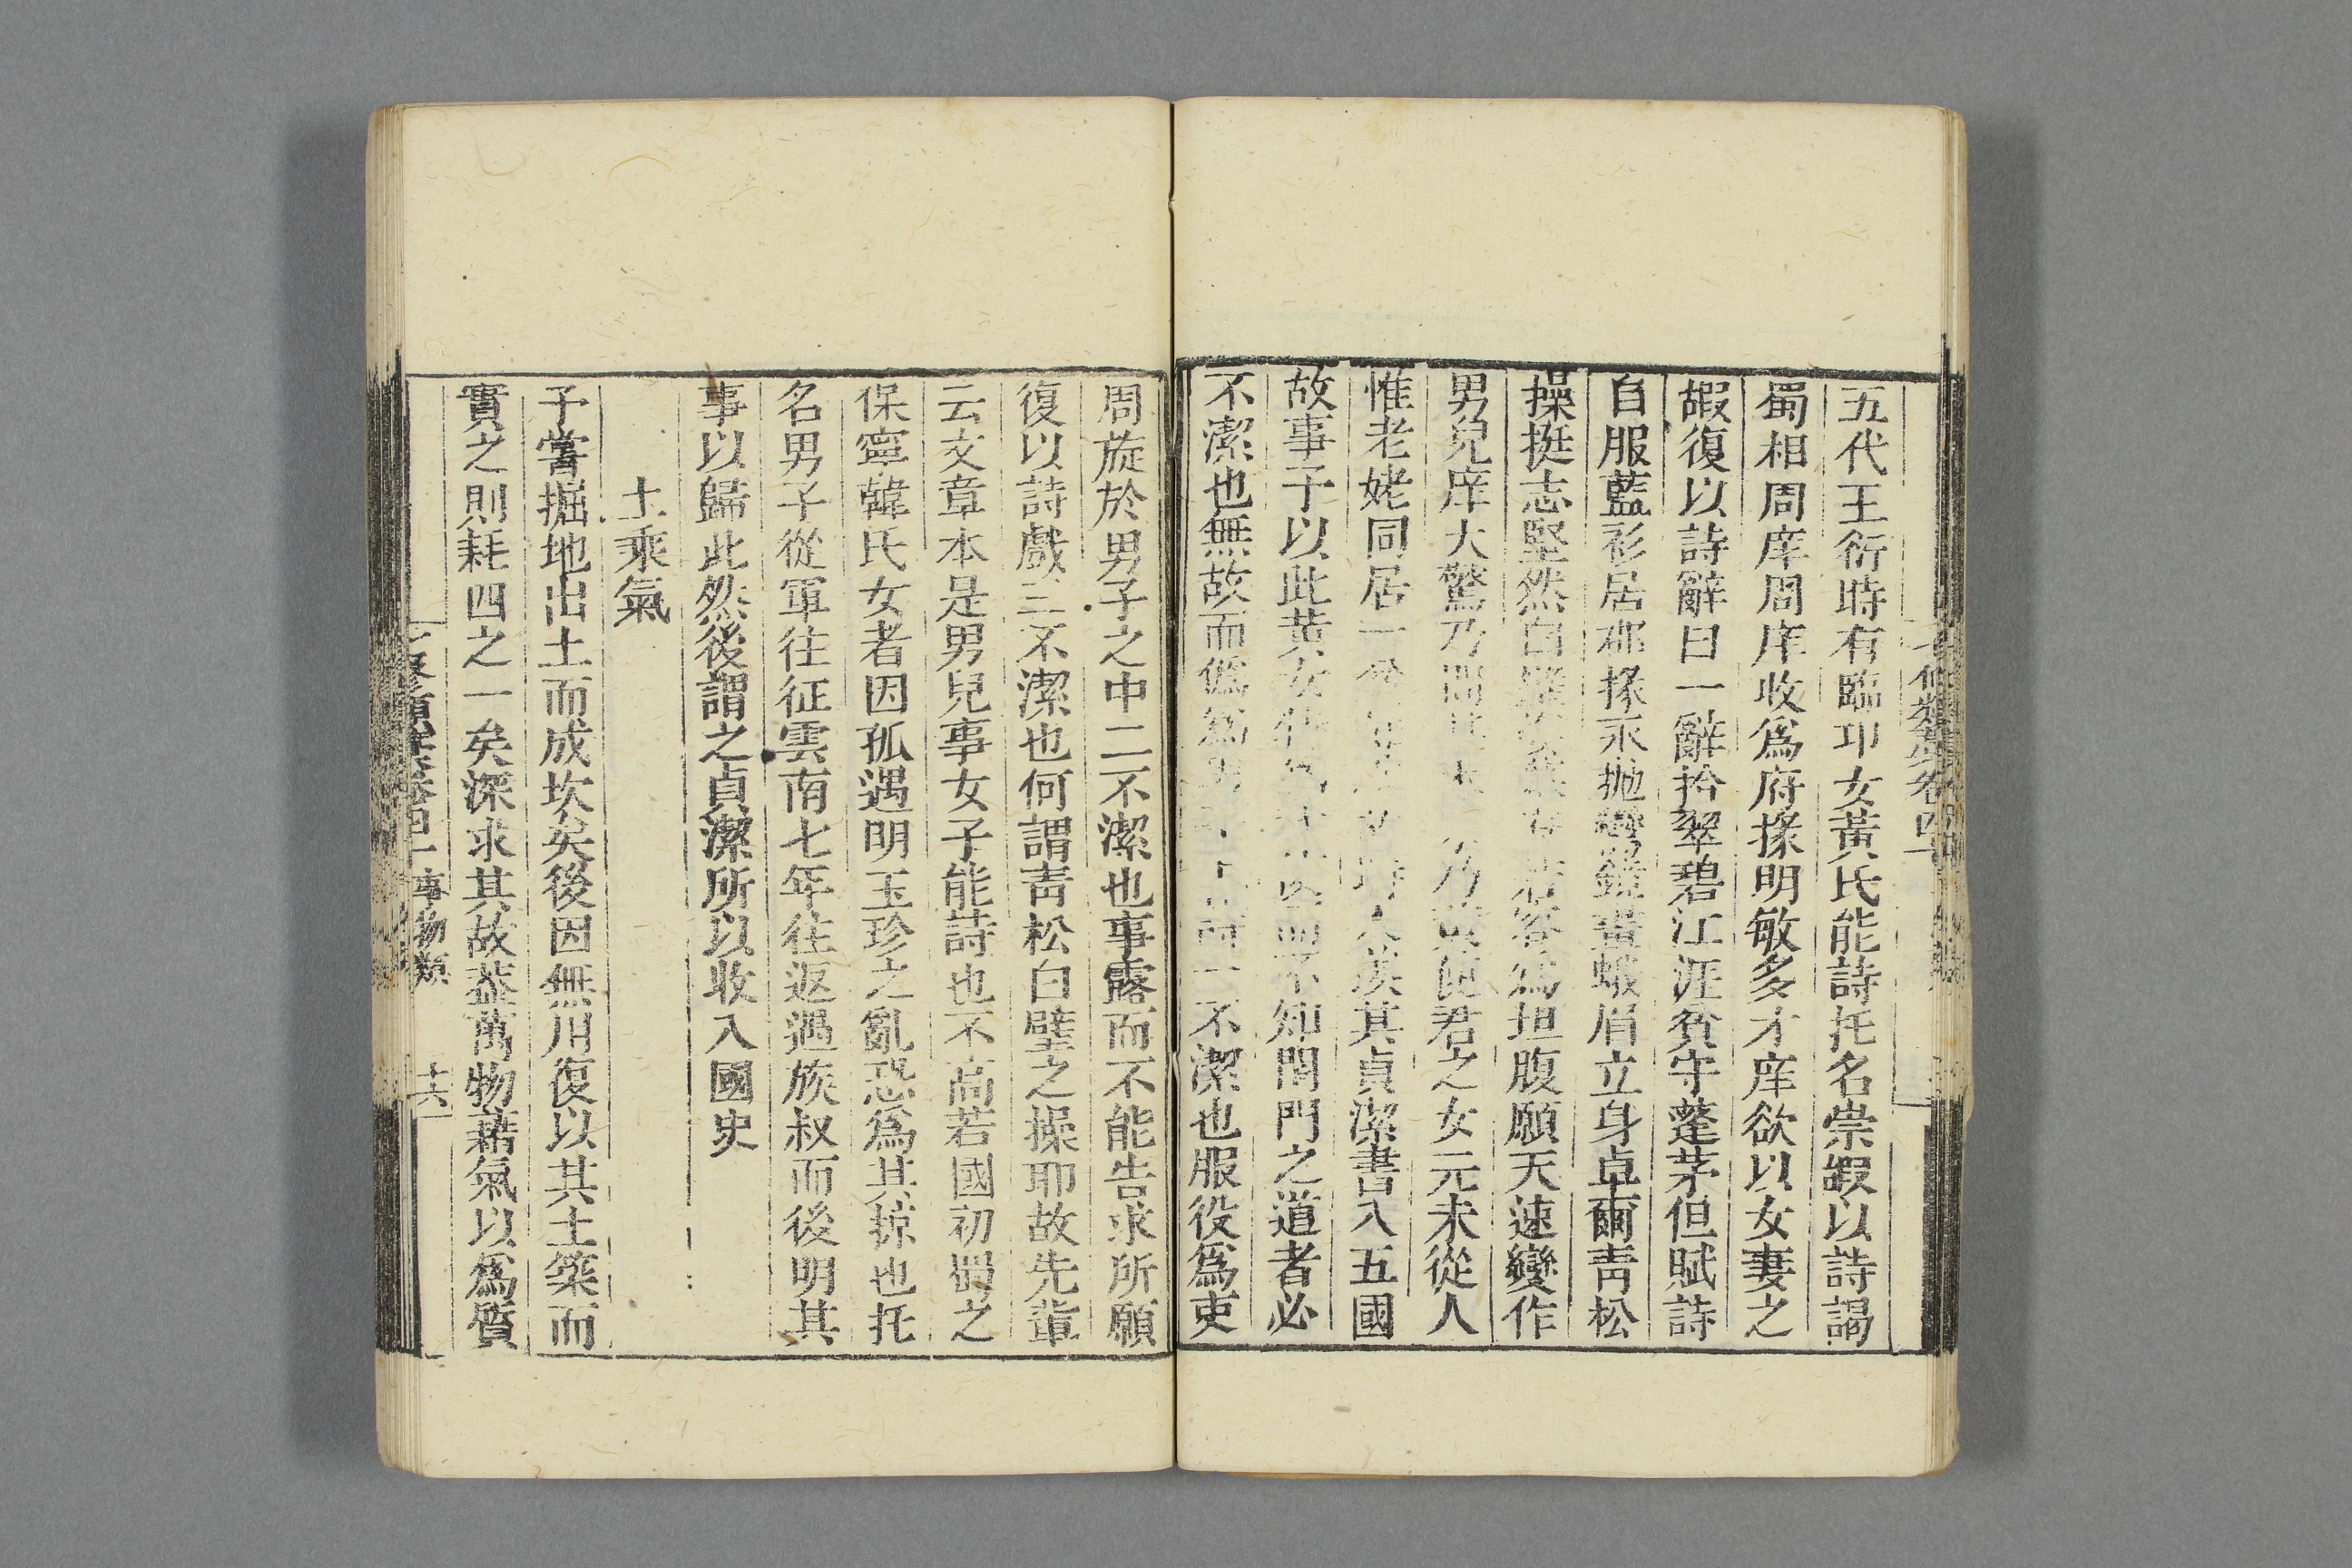 五代王衍時有臨卭女黃氏能詩托名崇嘏以詩謁
蜀相周庠周庠收爲府掾明敏多才庠欲以女妻之
嘏復以詩辭曰一辭拾翠碧江涯貧守蓬茅但賦詩
自服藍衫居郡掾永抛鸞鏡畫蛾眉立身卓爾靑松
操挺志堅然白璧姿幕府若容爲坦腹願天速變作
男兒庠大驚乃問 乃黃使君之女元未從人
惟老姥同居一 時人 其貞潔書入五國
故事予以此黃女 不知閨門之道者必
不潔也無故而僞爲男子 一不潔也服役爲吏
周旋於男子之中二不潔也事露而不能告求所願
復以詩戲三不潔也何謂靑松白璧之操耶故先輩
云文章本是男兒事女子能詩也不高若國初蜀之
保寧韓氏女者因孤遇明玉珍之亂恐爲其掠也托
名男子從軍往征雲南七年往返遇族叔而後明其
事以歸此然後謂之貞潔所以收入國史
土乘氣
予嘗掘地出土而成坎矣後因無用復以其土築而
實之則耗四之一矣深求其故葢萬物藉氣以爲質
事物類
十六